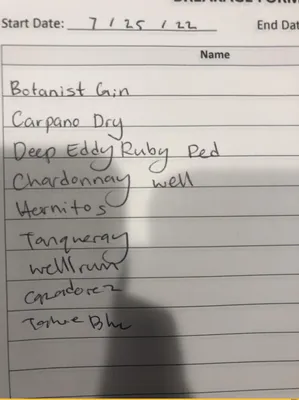 BREAKAGE FORM
Start Date: 7 / 25 / 22 End Dat
Name
Botanist Gin
Carpano Dry
Deep Eddy Ruby Red
Chardonnay well
Hernitos
Tanqueray
well rum
Cazadorez